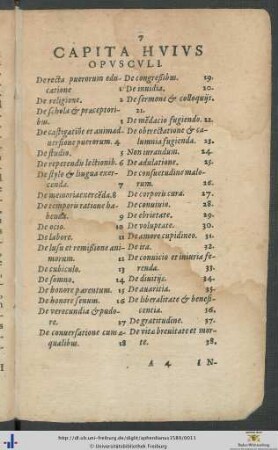 7
CAPITA HVIVS
OPVSCVLI.
De recta puerorum edu-
catione 1
De religione. 2
De schola & præceptori-
bus. 3
De castigatiōe et animad
uersione puerorum. 4
De studio. 5
De repetendis lectionib. 6
De stylo & lingua exer-
cenda. 7
De memoria exercēda. 8
De temporis ratione ha-
benda. 9
De ocio. 10
De labore. 11
De lusu et remissione ani-
morum. 12
De cubiculo. 13
De somno. 14
De honore parentum. 15
De honore senum. 16
De verecundia & pudo-
re. 17
De conuersatione cum æ-
qualibus. 18
De congressibus. 19.
De inuidia. 20.
De sermone & colloquijs.
21.
De mēdacio fugiendo. 22.
De obtrectatione & ca-
lumnia fugienda. 23.
Non iurandum. 24.
De adulatione. 25.
De consuetudine malo-
rum. 26.
De corporis cura. 27.
De conuiuio. 28.
De ebrietate. 29.
De voluptate. 30.
De amore cupidineo. 31.
De ira. 32.
De conuicio et iniuria fe-
renda. 33.
De diuitijs. 34.
De auaritia. 35.
De liberalitate & benefi-
centia. 36.
De gratitudine. 37.
De vita breuitate et mor-
te. 38.
A 4 IN-
http://dl.ub.uni-freiburg.de/diglit/sphordianus1580/0011
© Universitätsbibliothek Freiburg